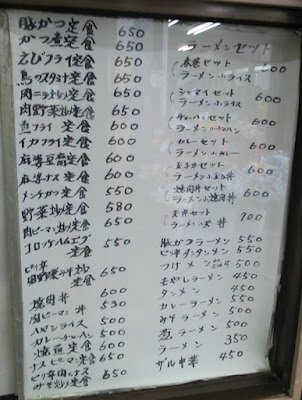 豚かつ定食 650
かつ煮定食 650
えびフライ定食 650
鳥のスタミナ定食 650
肉ニラトジ定食 650
肉野菜炒定食 650
魚フライ定食 600
イカフライ定食 600
麻婆豆腐定食 600
麻婆ナス定食 600
メンチカツ定食 550
野菜炒定食 580
肉ピーマン炒定食 600
コロッケハムエッグ定食 550
ピリ辛肉野菜みそ炒定食 650
焼肉丼 600
肉ピーマン丼 530
ハヤシライス 500
カレーチャーハン 500
焼魚定食 600
ナスピーマン定食 650
ピリ辛肉ナスみそ炒定食 650
ラーメンセット
春巻セット
ラーメン小ライス 600
シューマイセット
ラーメン小ライス 600
チャーハンセット
ラーメン小チャーハン 600
カレーセット
ラーメン小カレー 600
玉子丼セット
ラーメン小玉子丼 600
焼肉丼セット
ラーメン小焼肉丼 600
天丼セット
ラーメン天丼 700
豚かつラーメン 550
ピリ辛タンタンメン 550
つけメン 550
もやしラーメン 450
タンメン 450
カレーラーメン 550
みそラーメン 500
ラーメン 500
ラーメン 350
ザル中華 450